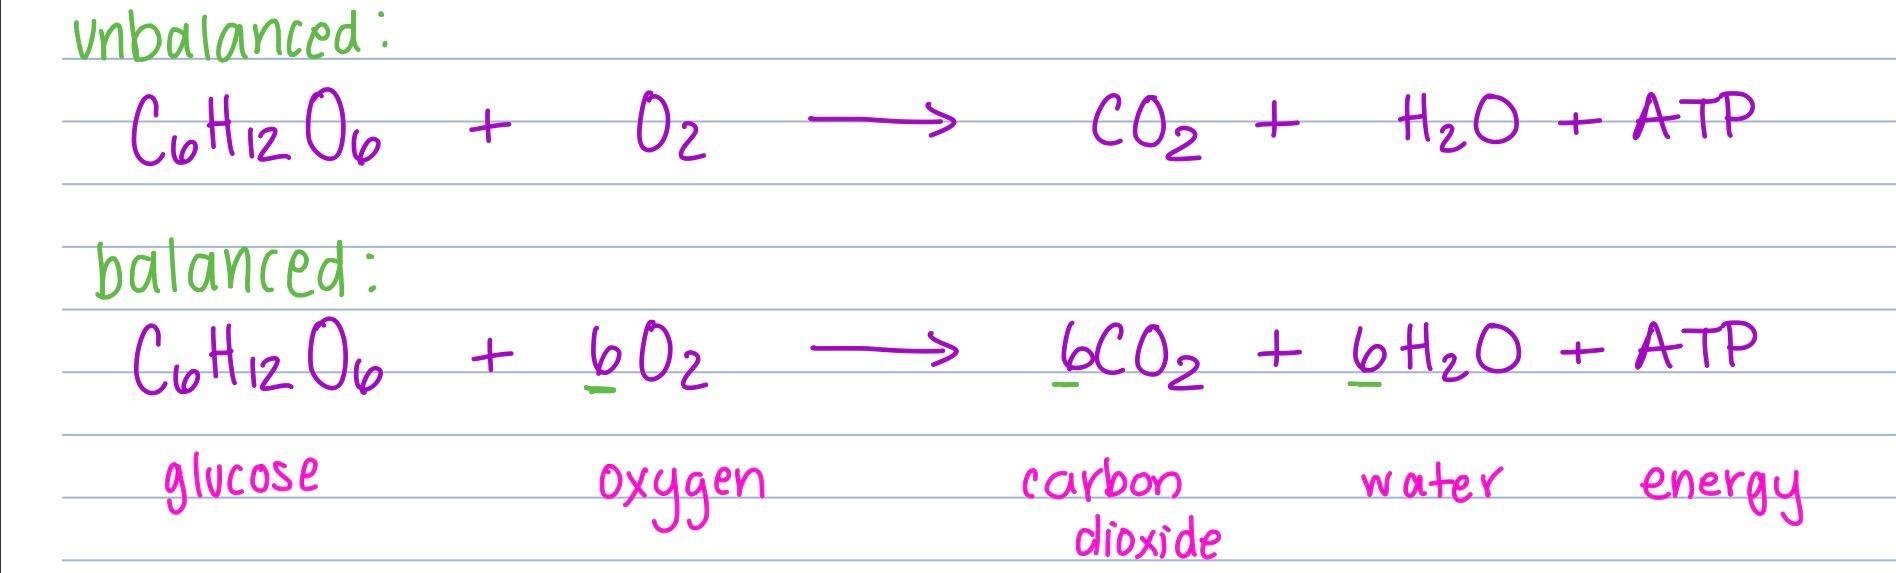 unbalanced:
C₆H₁₂O₆ + O₂ → CO₂ + H₂O + ATP
balanced:
C₆H₁₂O₆ + 6O₂ → 6CO₂ + 6H₂O + ATP
glucose oxygen carbon water energy
dioxide